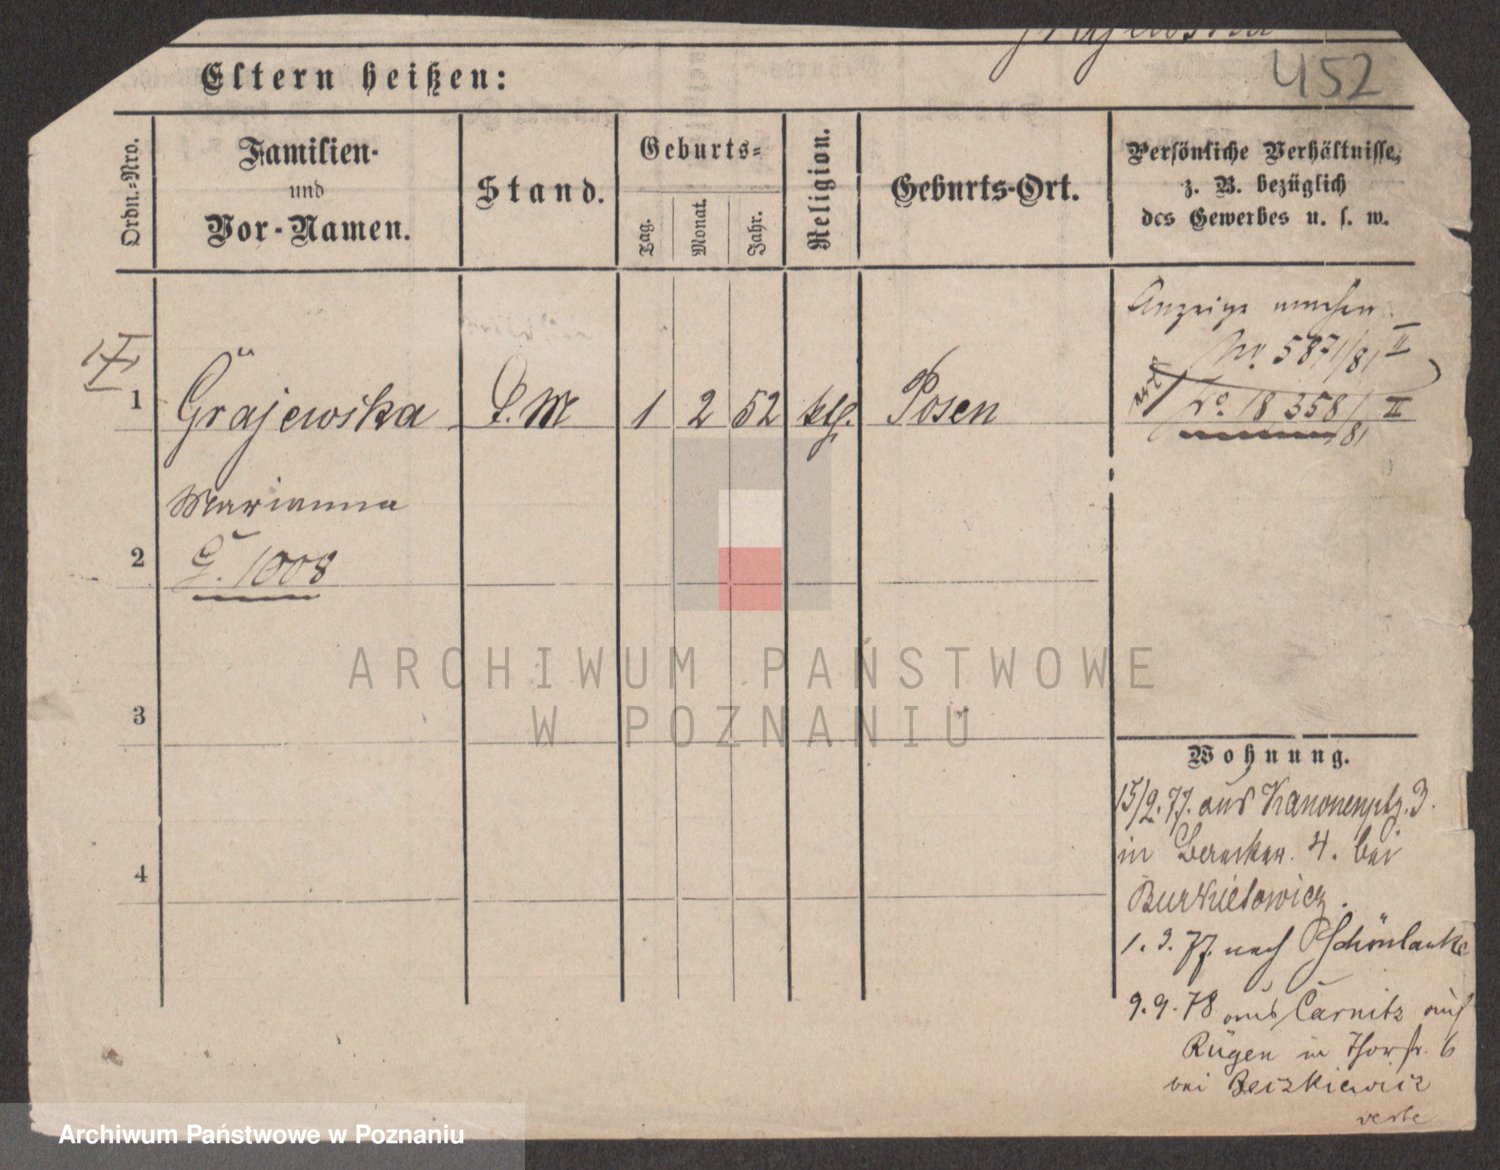 Grajewska
452
Eltern heißen:
Ordn.-Nro.
Familien-
und
Vor-Namen.
Stand.
Geburts-
Tag.
Monat.
Jahr.
Religion.
Geburts-Ort.
Persönliche Verhältnisse,
z. B. bezüglich
des Gewerbes u. s. w.
Anzeige machen
No. 5871/81 II
No. 18 358/81 II
1 Grajewska D.M 1 2 52 ktl. Posen
Marianna
2 G. 1008
3
4
Wohnung.
15/2.77. aus Kanonenplz. 3.
in 4. bei
1. 3. 77. nach Schönlanke
9. 9. 78 aus Carnitz auf
Rügen in Thorstr. 6
bei Beszkiewicz
ARCHIWUM PAŃSTWOWE
W POZNANIU
Archiwum Państwowe w Poznaniu